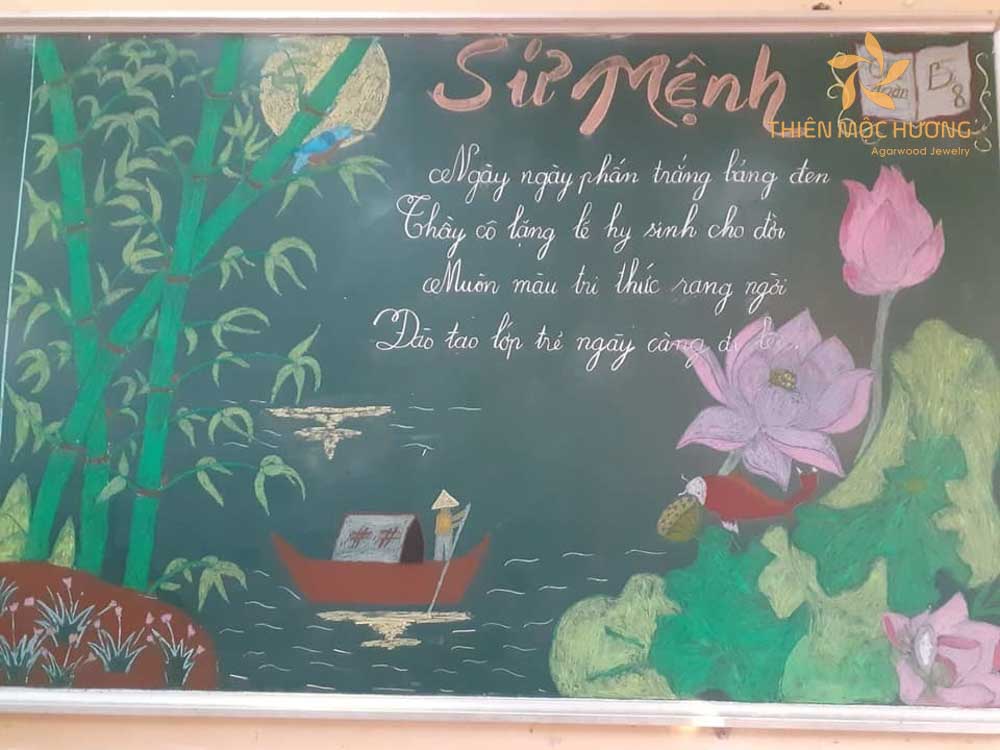 Sứ Mệnh
B
8
THIÊN MỘC HƯƠNG
Agarwood Jewelry
Ngày ngày phấn trắng bảng đen
Thầy cô lặng lẽ hy sinh cho đời
Muôn màu tri thức rạng ngời
Đào tạo lớp trẻ ngày càng đi